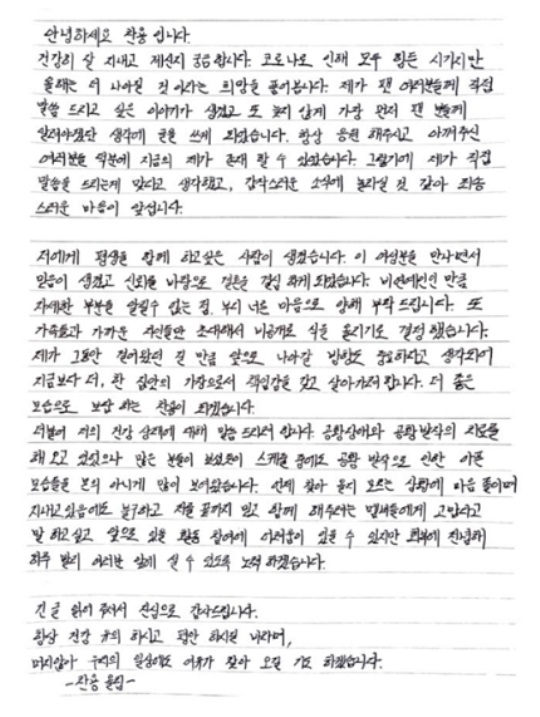 안녕하세요 찬용 입니다.
건강히 잘 지내고 계신지 궁금합니다. 코로나로 인해 모두 힘든 시기지만
올해는 더 나아질 것 이라는 희망을 품어봅니다. 제가 팬 여러분들께 직접
말씀 드리고 싶은 이야기가 생겼고 또 늦지 않게 가장 먼저 팬 분들께
알려야겠단 생각에 글을 쓰게 되었습니다. 항상 응원 해주시고 아껴주신
여러분들 덕분에 지금의 제가 존재 할 수 있었습니다. 그렇기에 제가 직접
말씀을 드리는게 맞다고 생각했고, 갑작스러운 소식에 놀라실 것 같아 죄송
스러운 마음이 앞섭니다.
저에게 평생을 함께 하고싶은 사람이 생겼습니다. 이 여성분을 만나면서
믿음이 생겼고 신뢰를 바탕으로 결혼을 결심 하게 되었습니다. 비연예인인 만큼
자세한 부분을 알릴수 없는 점, 부디 넓은 마음으로 양해 부탁 드립니다. 또
가족들과 가까운 지인들만 초대해서 비공개로 식을 올리기로 결정 했습니다.
제가 그동안 걸어왔던 길 만큼 앞으로 나아갈 방향도 중요하다고 생각되어
지금보다 더, 한 집안의 가장으로서 책임감을 갖고 살아가려 합니다. 더 좋은
모습으로 보답 하는 찬용이 되겠습니다.
더불어 저의 건강 상태에 대해 말씀 드리려 합니다. 공황장애와 공황 발작의 치료를
해 오고 있었으나 많은 분들이 보셨듯이 스케줄 중에도 공황 발작으로 인한 아픈
모습들을 본의 아니게 많이 보여왔습니다. 언제 찾아 올지 모르는 상황에 마음 졸이며
지내고 있음에도 불구하고 저를 끝까지 믿고 함께 해주려는 멤버들에게 고맙다고
말 하고싶고 앞으로 있을 활동 참여에 어려움이 있을 수 있지만 회복에 전념해
하루 빨리 여러분 앞에 설 수 있도록 노력 하겠습니다.
긴 글 읽어 주셔서 진심으로 감사드립니다.
항상 건강 유의 하시고 평안 하시길 바라며,
머지않아 우리의 일상에도 여유가 찾아 오길 기도 하겠습니다.
-찬용 올림-